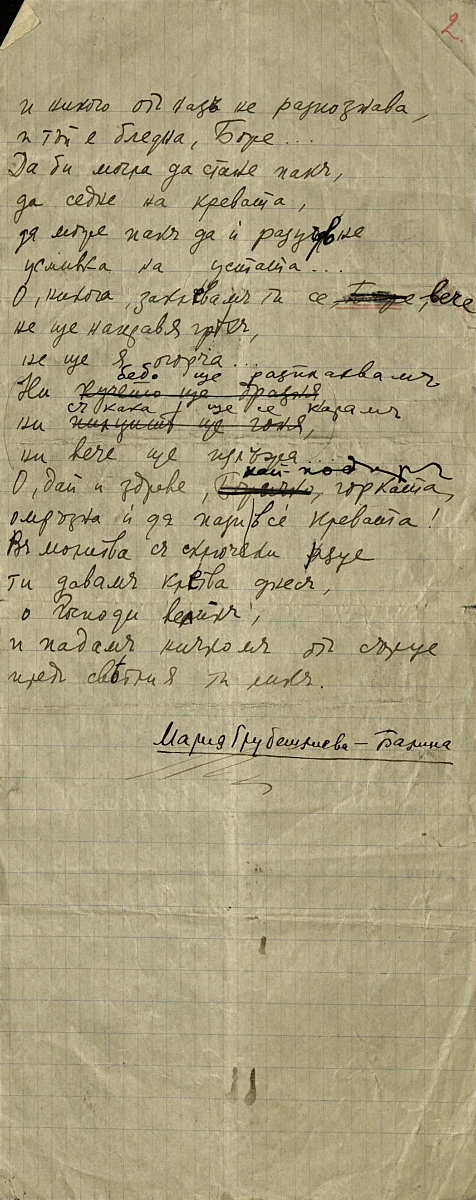 2.
и никого отъ насъ не разпознава,
и тъй е бледна, Боже...
Да би могла да стане пакъ,
да седне на кревата,
да може пакъ да й разцъвне
усмивка на устата...
О, никога, заклевамъ ти се, Боже, вече
не ще направя грехъ,
не ще я огорча...
бебо ще разплаквамъ
Ни кучето ще дразня
съ кака ще се карамъ
ни ще гоня,
ни вече ще лъжа...
най-подиръ
О, дай и здраве, горката,
омръзна й да пази все кревата!
Въ молитва съ сключени ръце
ти давамъ клетва днесъ,
о Господи великъ,
и падамъ ничкомъ отъ сърце
предъ светлия ти ликъ.
Мария Грубешлиева - Балина